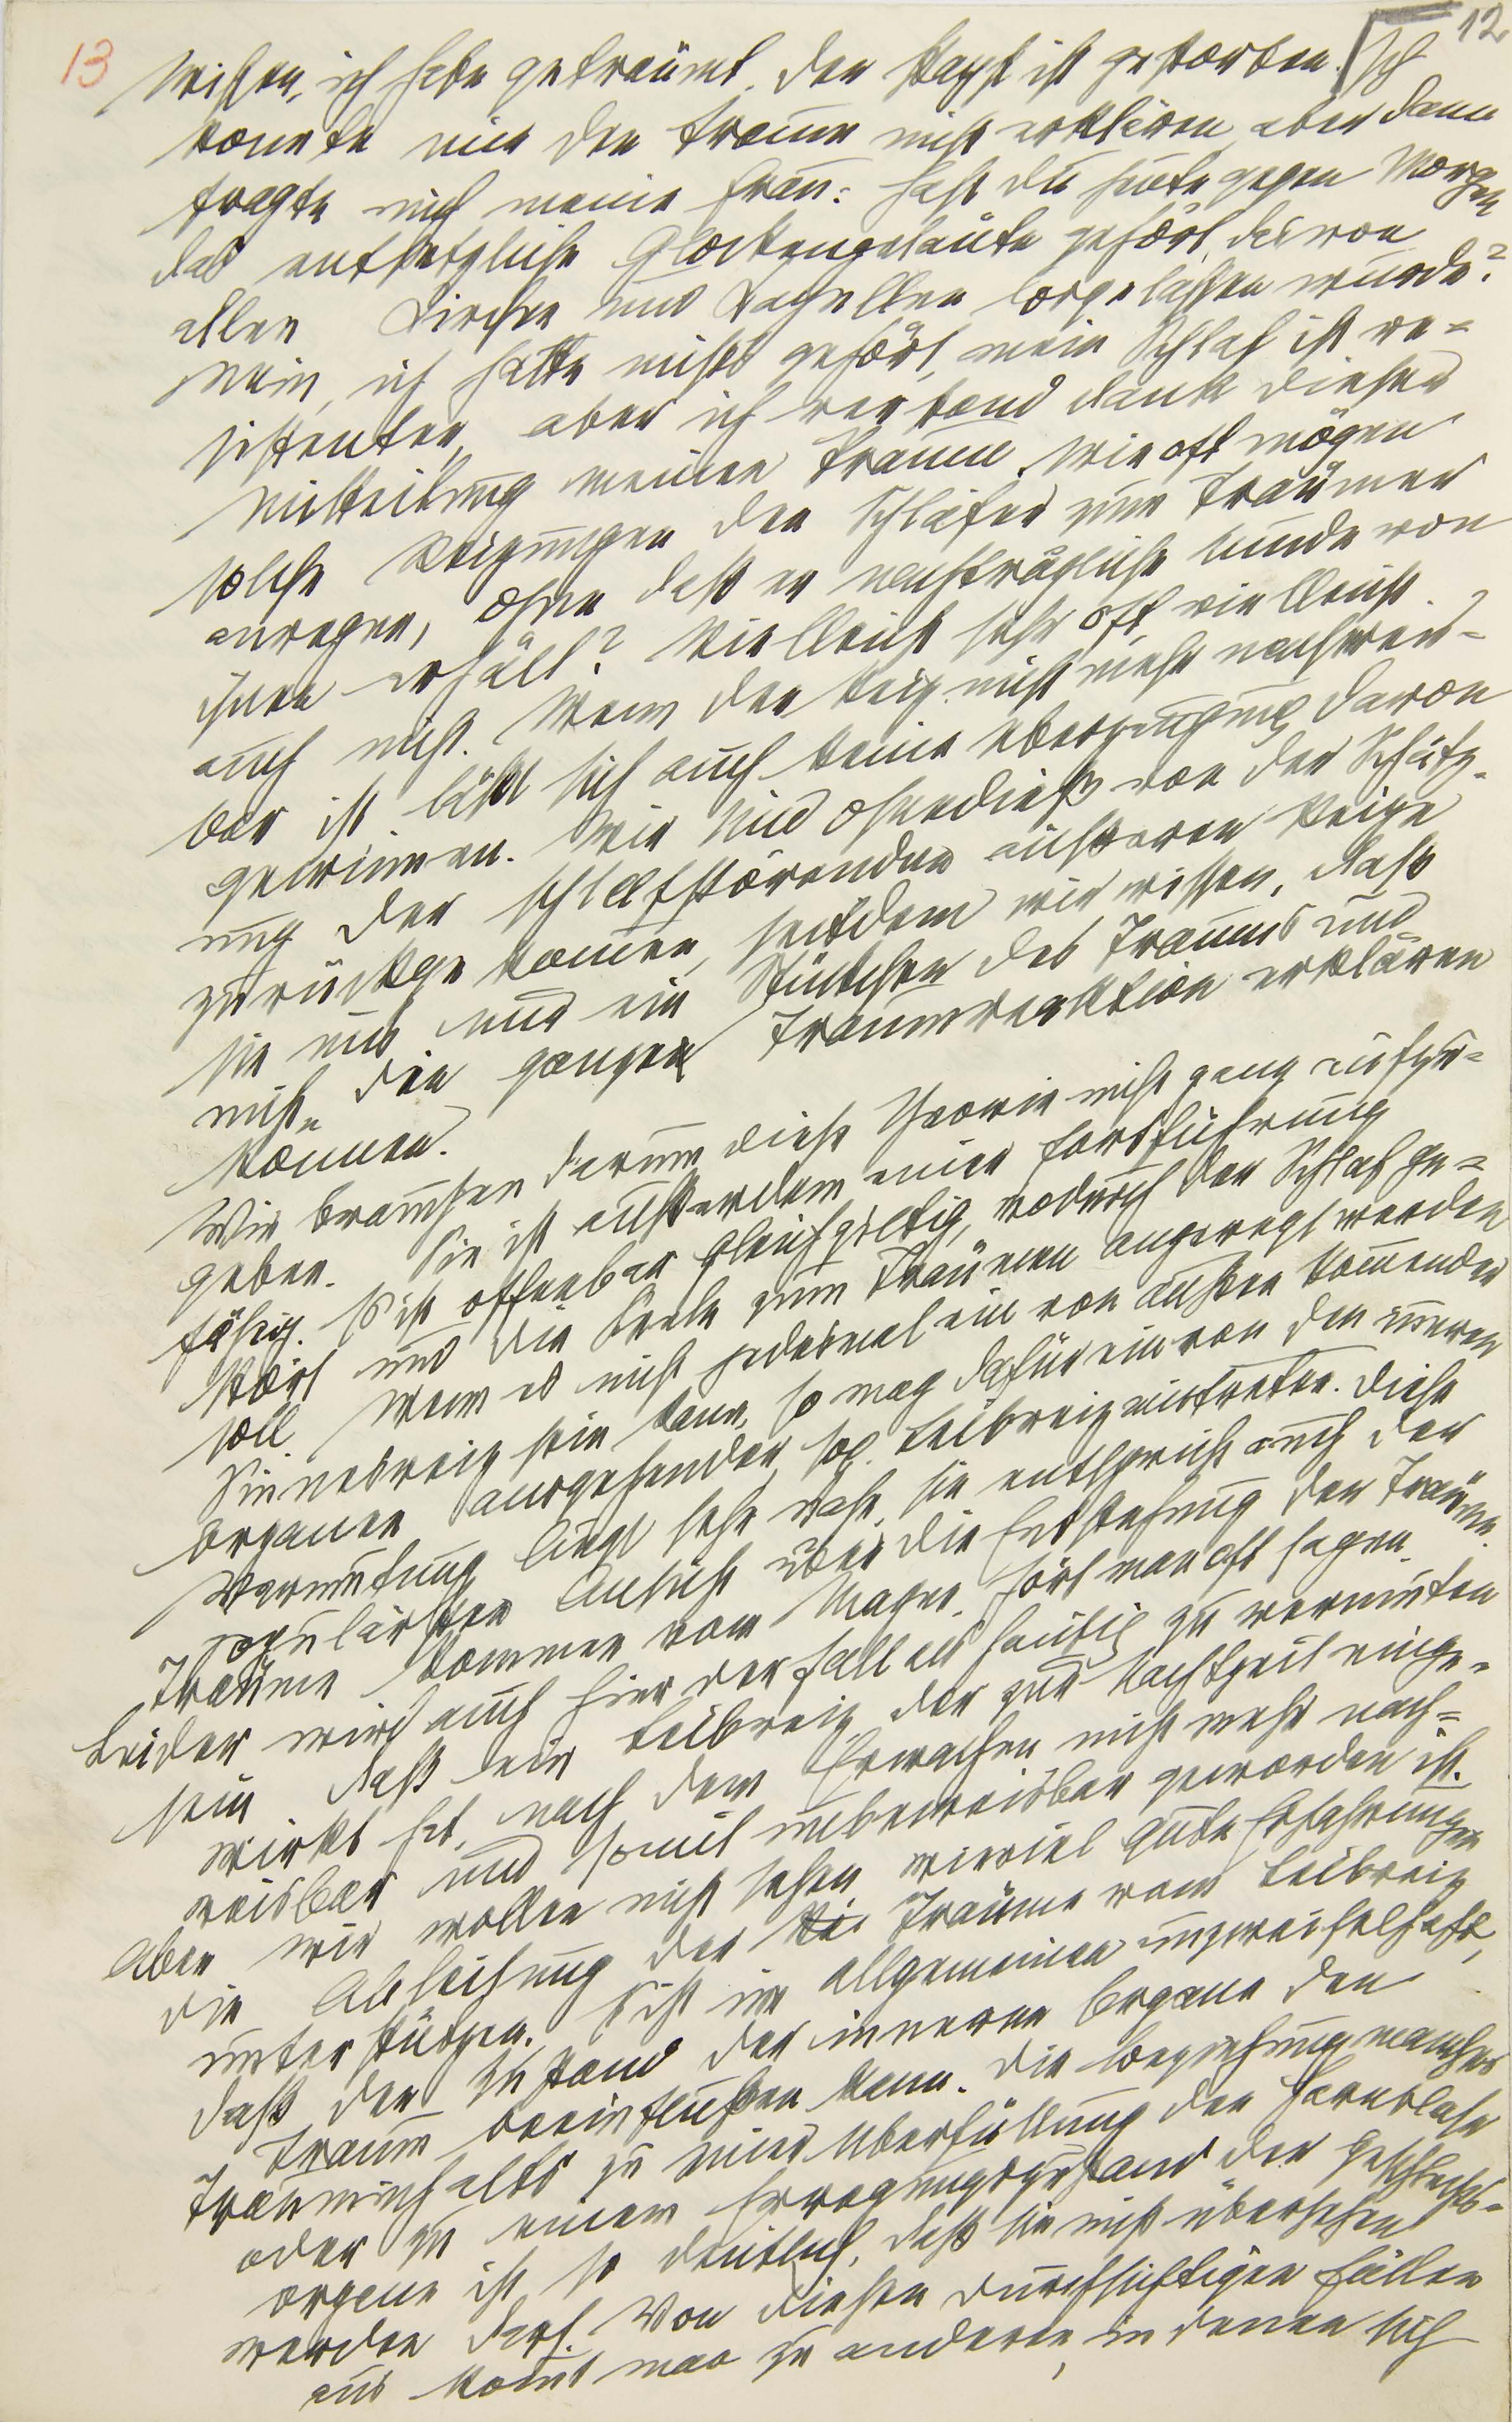 13 12
Wissen, ich habe geträumt, der Papst ist gestorben. Ich
konnte mir den Traum nicht erklären, aber dann
fragte mich meine Frau: Hast du heute gegen Morgen
das entsetzliche Glockengeläute gehört, das von
allen Kirchen und Kapellen losgelassen wurde?
Nein, ich hatte nichts gehört, mein Schlaf ist re-
sistenter, aber ich verstand dank dieser
Mitteilung meinen Traum. Wie oft mögen
solche Reizungen den Schläfer zum Träumen
anregen, ohne daß er nachträgliche Kunde von
ihnen erhält? Vielleicht sehr oft, vielleicht
auch nicht. Wenn der Reiz nicht mehr nachweis-
bar ist, läßt sich auch keine Überzeugung davon
gewinnen. Wir sind ohnedies von der Schätz-
ung der schlafstörenden äußeren Reize
zurückgekommen, seitdem wir wissen, daß
sie uns nur ein Stückchen des Traums und
nicht die ganze Traumreaktion erklären
können.
Wir brauchen darum diese Theorie nicht ganz aufzu-
geben. Sie ist außerdem einer Fortführung
fähig. Es ist offenbar gleichgiltig, wodurch der Schlaf ge-
stört und die Seele zum Träumen angeregt werden
soll. Wenn es nicht jedesmal ein von außen kommender
Sinnesreiz sein kann, so mag dafür ein von den inneren
Organen ausgehender, sog. Leibreiz eintreten. Diese
Vermutung liegt sehr nahe, sie entspricht auch der
populärsten Ansicht über die Entstehung der Träume.
Träume kommen vom Magen, hört man oft sagen.
Leider wird auch hier der Fall als häufig zu vermuten
sein, daß ein Leibreiz, der zur Nachtzeit einge-
wirkt hat, nach dem Erwachen nicht mehr nach-
weisbar und somit unbeweisbar geworden ist.
Aber wir wollen nicht sehen, wieviel gute Erfahrungen
die Ableitung der Träume vom Leibreiz
unterstützen. Es ist im allgemeinen unzweifelhaft,
daß der Zustand der inneren Organe den
Traum beeinflußen kann. Die Beziehung manches
Trauminhalts zu einer Überfüllung der Harnblase
oder zu einem Erregungszustand der Geschlechts-
organe ist so deutlich, daß sie nicht übersehen
werden darf. Von diesen durchsichtigen Fällen
aus kommt man zu anderen, in denen sich